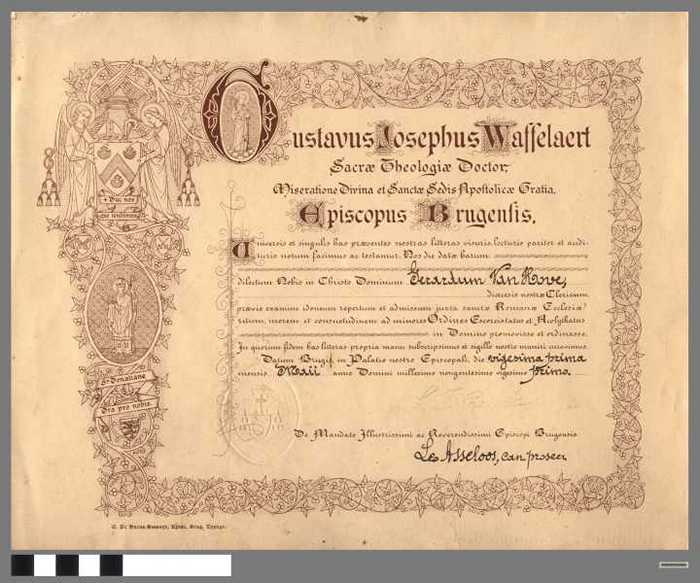 Gustavus Josephus Waffelaert
Sacræ Theologiæ Doctor,
Miseratione Divina et Sanctæ Sedis Apostolicæ Gratia,
Episcopus Brugensis,
Universis et singulis has præsentes nostras litteras visuris, lecturis pariter et audi-
turis notum facimus ac testamur. Nos die datæ harum
dilectum Nobis in Christo Dominum Gerardum Van Hove,
diœcesis nostræ Clericum
prævio examini idoneum repertum et admissum juxta sanctæ Romanæ Ecclesiæ
ritum, morem et consuetudinem ad minores Ordines Exorcistatus et Acolythatus
in Domino promovisse et ordinasse.
In quorum fidem has literas propria manu subscripsimus et sigillo nostro muniri curavimus.
Datum Brugis in Palatio nostro Episcopali, die vigesima prima
mensis Maii anno Domini millesimo nongentesimo vigesimo primo.
De Mandato Illustrissimi ac Reverendissimi Episcopi Brugensis
S. Donatiane
Ora pro nobis.